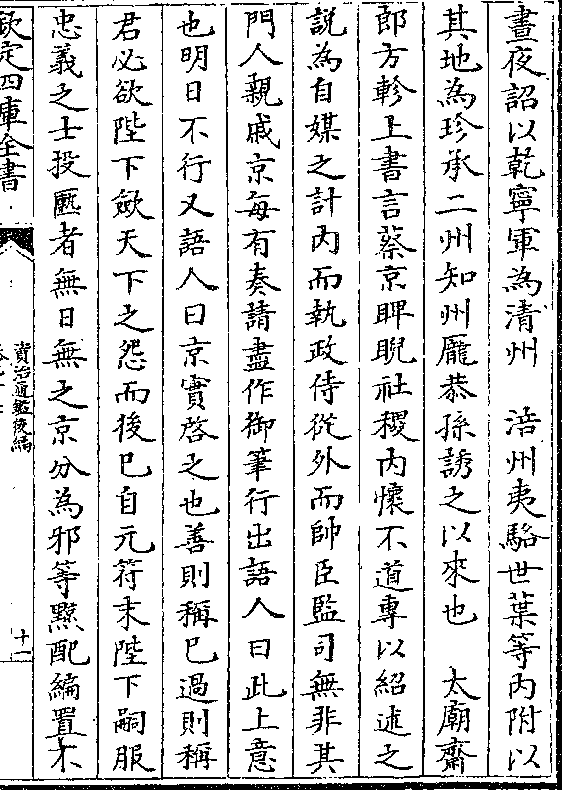 晝夜詔以乾寧軍為清州　涪州夷駱世葉等内附以
其地為珍承二州知州龎恭孫誘之以來也　太廟齋
郎方軫上書言蔡京睥睨社稷内懷不道專以紹述之
說為自媒之計内而執政侍從外而帥臣監司無非其
門人親戚京每有奏請盡作御筆行出語人曰此上意
也明日不行又語人曰京實啓之也善則稱已過則稱
君必欲陛下歛天下之怨而後已自元符末陛下嗣服
忠義之士投匭者無日無之京分為邪等黥配編置不
欽定四庫全書
資治通鑑後編
十一